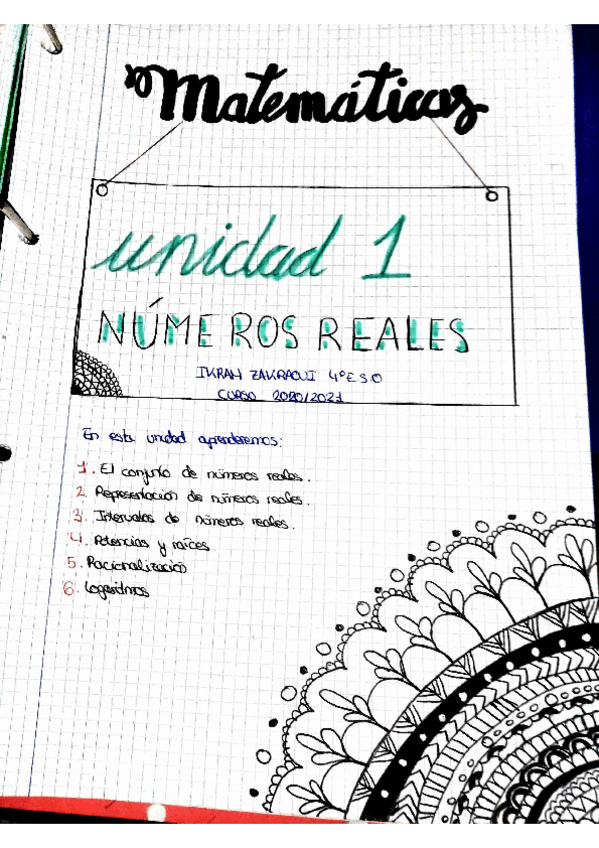 Matemáticas
unidad 1
NÚMEROS REALES
IKRAM ZAKRAOUI 4º ESO
CURSO 2020/2021
En esta unidad aprenderemos:
1. El conjunto de números reales.
2. Representación de números reales.
3. Intervalos de números reales.
4. Potencias y raíces
5. Racionalización
6. Logaritmos